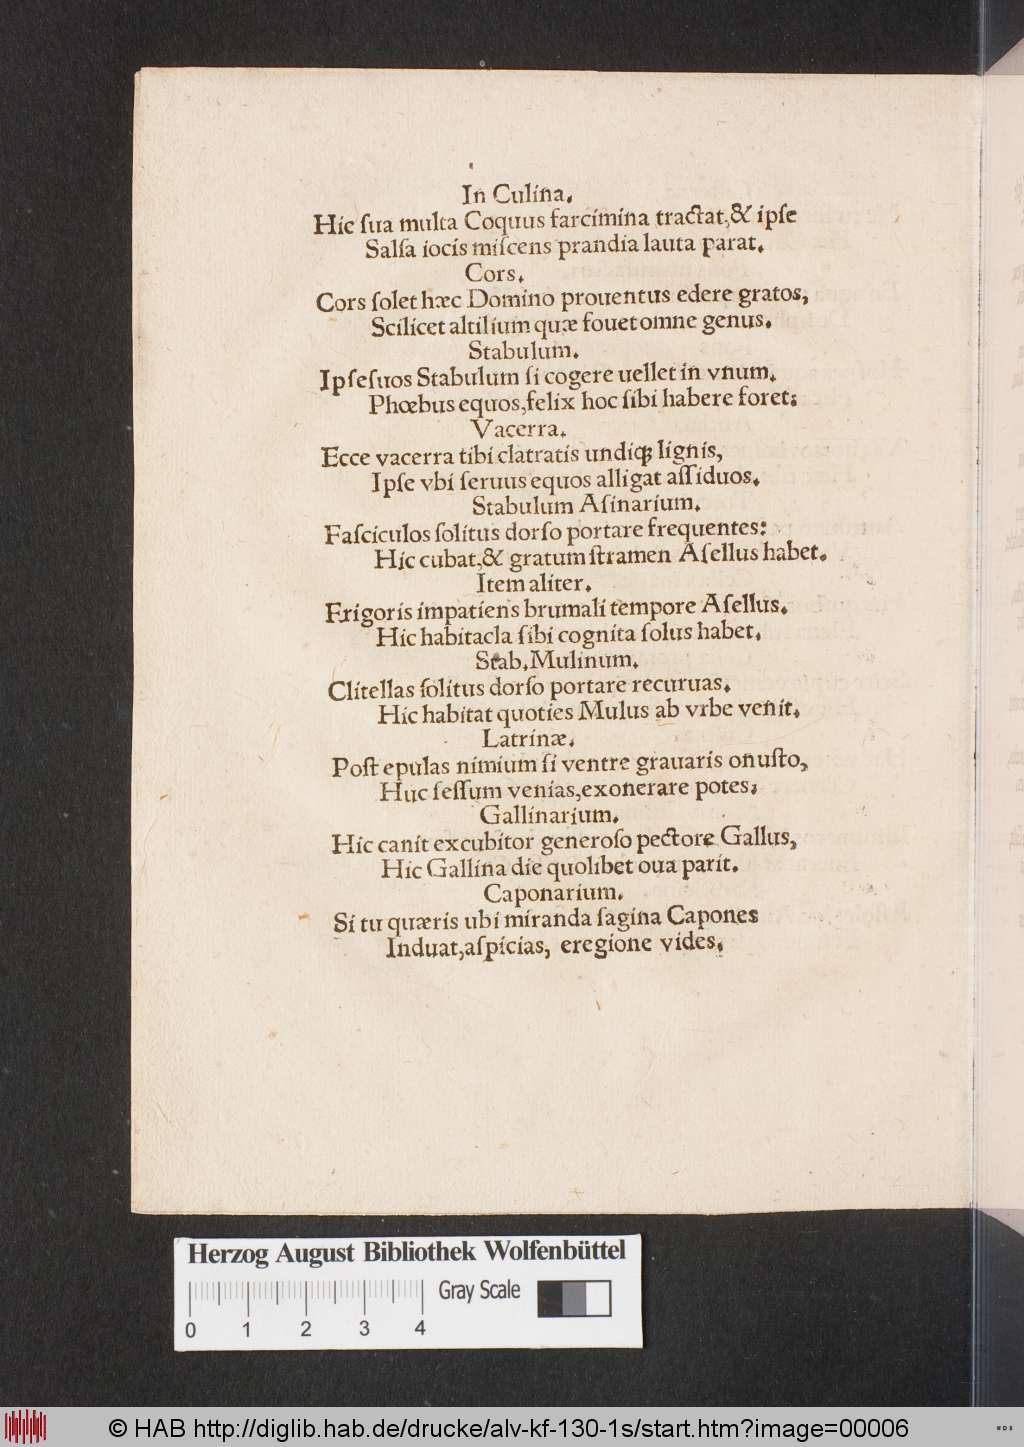 In Culina.
Hic ſua multa Coquus farcimina tractat,& ipſe
Salſa iocis miſcens prandia lauta parat.
Cors.
Cors ſolet hæc Domino prouentus edere gratos,
Scilicet altilium quæ fouet omne genus.
Stabulum.
Ipſe ſuos Stabulum ſi cogere uellet in vnum.
Phœbus equos,felix hoc ſibi habere foret;
Vacerra.
Ecce vacerra tibi clatratis undiqꝫ lignis,
Ipſe vbi ſeruus equos alligat aſſiduos.
Stabulum Aſinarium.
Faſciculos ſolitus dorſo portare frequentes:
Hic cubat,& gratum ſtramen Aſellus habet.
Item aliter.
Frigoris impatiens brumali tempore Aſellus.
Hic habitacla ſibi cognita ſolus habet.
Stab.Mulinum.
Clitellas ſolitus dorſo portare recuruas.
Hic habitat quoties Mulus ab vrbe venit.
Latrinæ.
Poſt epulas nimium ſi ventre grauaris onuſto,
Huc feſſum venias,exonerare potes;
Gallinarium.
Hic canit excubitor generoſo pectore Gallus,
Hic Gallina die quolibet oua parit.
Caponarium.
Si tu quæris ubi miranda ſagina Capones
Induat,aſpicias, eregione vides.
Herzog August Bibliothek Wolfenbüttel
Gray Scale
0 1 2 3 4
© HAB http://diglib.hab.de/drucke/alv-kf-130-1s/start.htm?image=00006